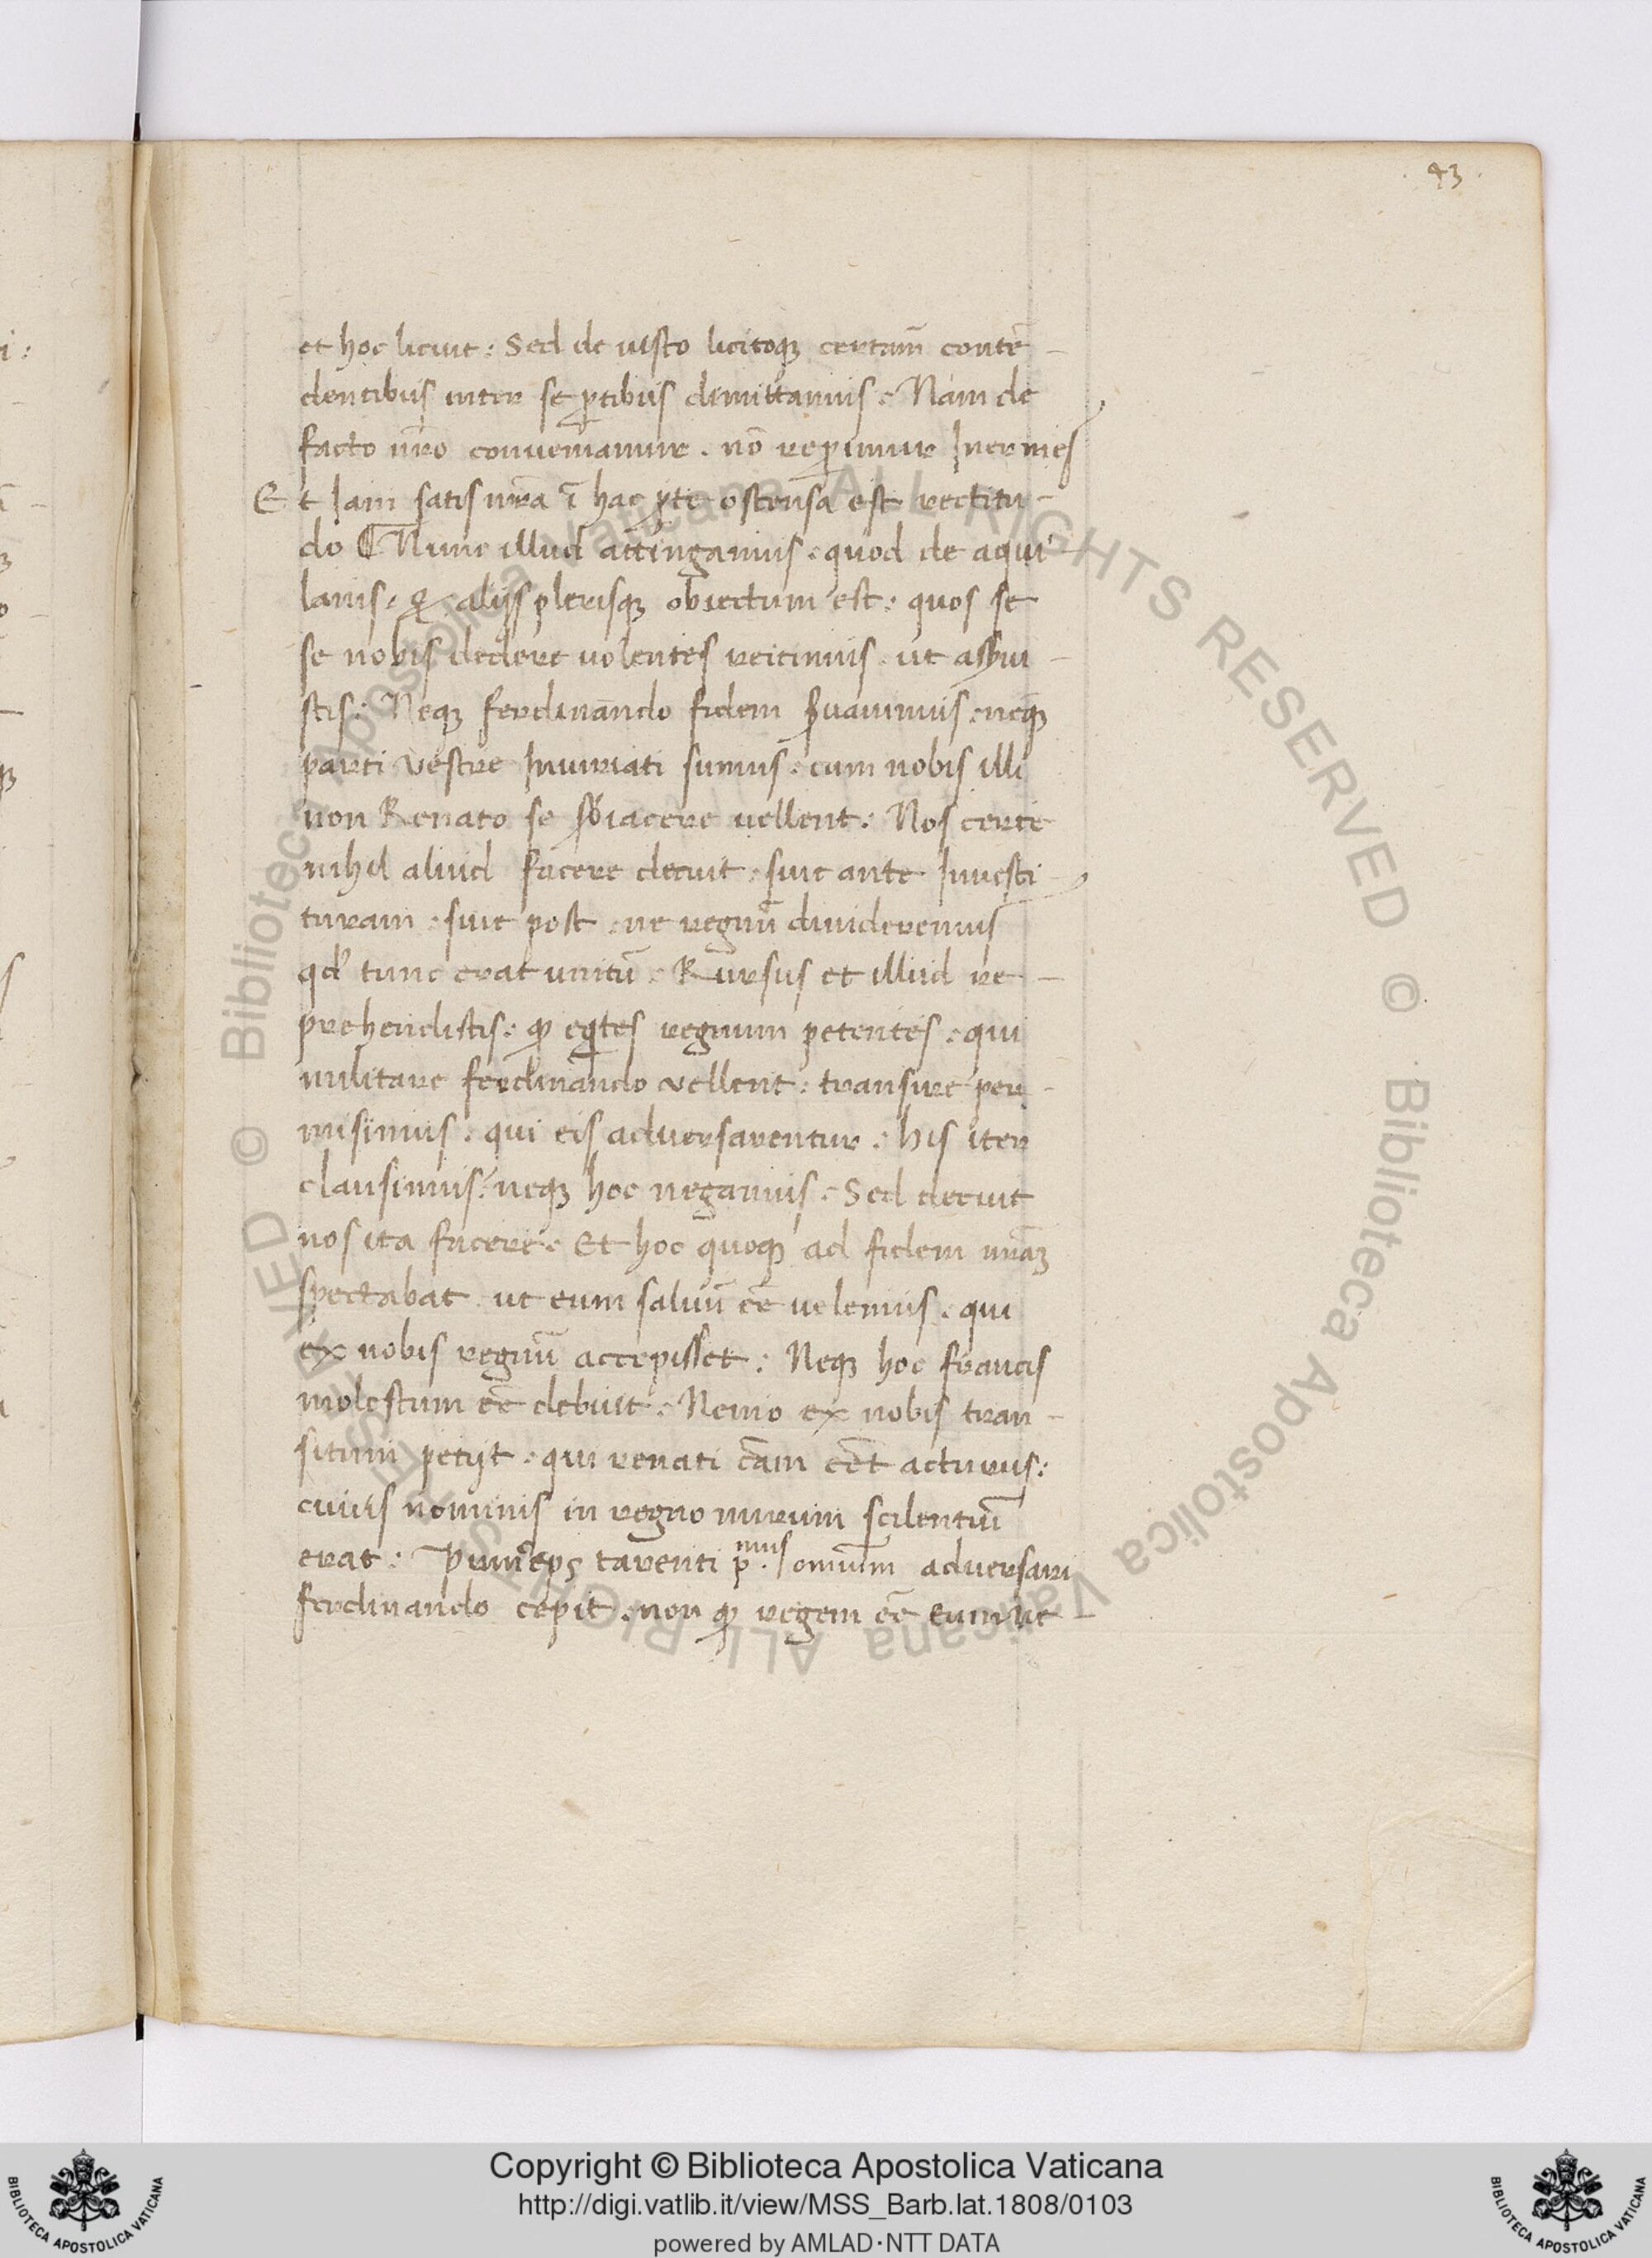 43
et hoc licuit: Sed de iusto licitoqꝫ certam̄ contē-
dentibus inter se ꝑtibus dimittamus. Nam de
facto nr̄o conueniamur. nō reꝑimur Inermes
Et Iam satis nr̄a ī hac ꝑte ostensa est rectitu-
do ⸿ Nunc illud attingamus. quod de aqui-
lanis. & alijs plerisqꝫ obiectum est: quos se
se nobis dedere uolentes reicimus. ut asserui-
stis: Neqꝫ ferdinando fidem ẜuauimus. neqꝫ
parti vestre Iniuriati sumus. cum nobis illi
non Renato se sb̄iacere uellent: Nos certe
nihil aliud facere decuit. siue ante Inuesti-
turam. siue post. ne regnū diuideremus
qd' tunc erat unitū. Rursus et illud re-
prehendistis: ꝙ eqͥtes regnum petentes. qui
militare ferdinando vellent: transire per-
misimus. qui eis aduersarentur. his iter
clausimus. neqꝫ hoc negamus. Sed decuit
nos ita facere. Et hoc quoqꝫ ad fidem nr̄aꝫ
spectabat. ut eum saluū eē̄ uelemus. qui
ex nobis regnū accepisset: Neqꝫ hoc francis
molestum eē̄ debuit. Nemo ex nobis tran-
situm petijt. qui renati cām eēt acturus:
cuius nominis in regno mirum scilentiū
erat: Princeps tarenti p.mus omnium aduersari
ferdinando cepit. non ꝙ regem eē̄ eum ue-
© Biblioteca Apostolica Vaticana ALL RIGHTS RESERVED © Biblioteca Apostolica Vaticana ALL RIGHTS RESERVED
Copyright © Biblioteca Apostolica Vaticana
http://digi.vatlib.it/view/MSS_Barb.lat.1808/0103
powered by AMLAD·NTT DATA
BIBLIOTECA APOSTOLICA VATICANA
BIBLIOTECA APOSTOLICA VATICANA